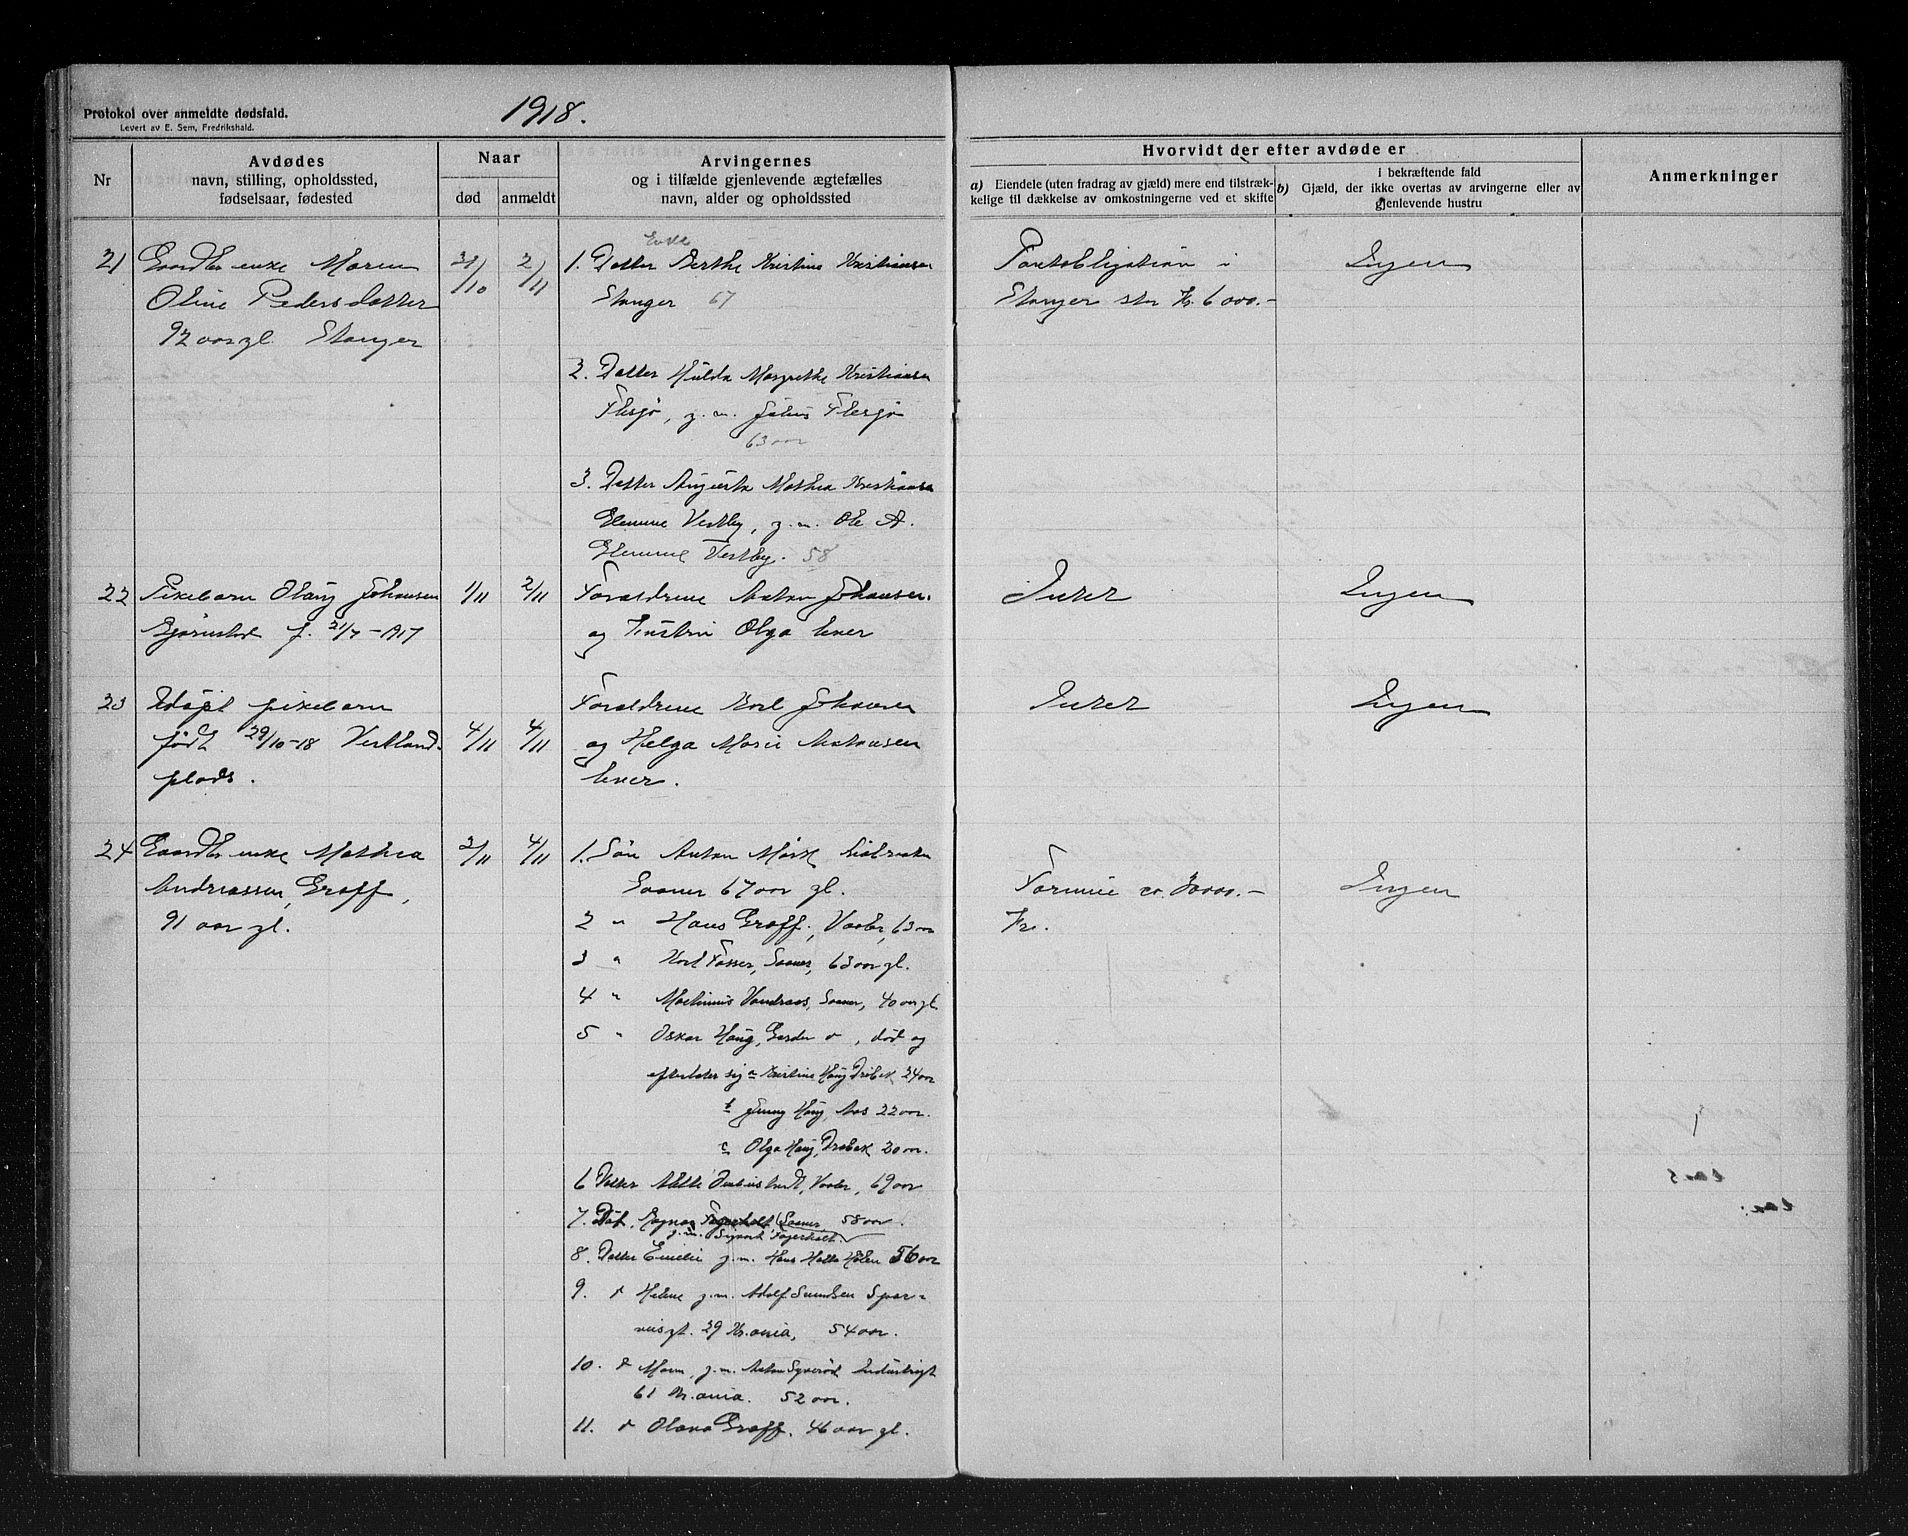 Protokol over anmeldte dødsfald.
Levert av E. Sem, Fredrikshald.
1918.
Nr
Avdødes
navn, stilling, opholdssted,
fødselsaar, fødested
Naar
død
anmeldt
Arvingernes
og i tilfælde gjenlevende ægtefælles
navn, alder og opholdssted
Hvorvidt der efter avdøde er
a) Eiendele (uten fradrag av gjæld) mere end tilstræk-
kelige til dækkelse av omkostningerne ved et skifte
i bekræftende fald
b) Gjæld, der ikke overtas av arvingerne eller av
gjenlevende hustru
Anmerkninger
21 Gaardbr enke Maren
Oline Pedersdatter
92 aar gl. Stanger
31/10 2/11
Enke
1. Datter Berthe Kristine Kristiansen
Stanger 67
2. Datter Hulda Margrethe Kristiansen
Flesjø, g. m. Julius Flesjø
63 aar
3. Datter Augusta Mathea Kristiansen
Glemme Vestby, g. m. Ole A.
Glemme Vestby. 58
Pantobligation i
Stanger stor Kr. 6000.-
Ingen
22 Pikebarn Olaug Johansen
Bjørnstad f. 21/7-917
1/11 2/11
Forældrene Anton Johansen
og hustru Olga lever
Intet
Ingen
23 Udøpt pikebarn
født 29/10-18 Vestland-
plads.
4/11 4/11
Forældrene Karl Johansen
og Helga Marie Mathisen
lever.
Intet
Ingen
24 Gaardbr enke Mathea
Andreassen, Graff,
91 aar gl.
2/11 4/11
1. Søn Anton Mørk
Saaner 67 aar gl.
2 " Hans Graff, Vaaler, 63 aar
3 " Karl Fosser, Saaner, 63 aar gl.
4 " Martinius Vandraas, Saaner, 40 aar gl
5 " Oskar Haug, Garder, død og
efterlater sig a Kristine Haug Drøbak 24 aar
b Jenny Haug, Aas 22 aar.
c Olga Haug, Drøbak 20 aar.
6 Datter Mette, Vaaler, 69 aar
7. Dat. Ragna Fagerholt, Saaner, 58 aar
g. m. Sigvart Fagerholt
8. Datter Emilie g. m. Hans Holte Hølen 56 aar
9. " Helene g. m. Adolf Amundsen Spor-
veisgt. 29 Kr.ania, 54 aar.
10. " Maren, g. m. Anton Syverød Industrigt
61 Kr.ania. 52 aar.
11. " Olava Graff. 46 aar gl.
Formue ca. 30000.-
Kr.
Ingen